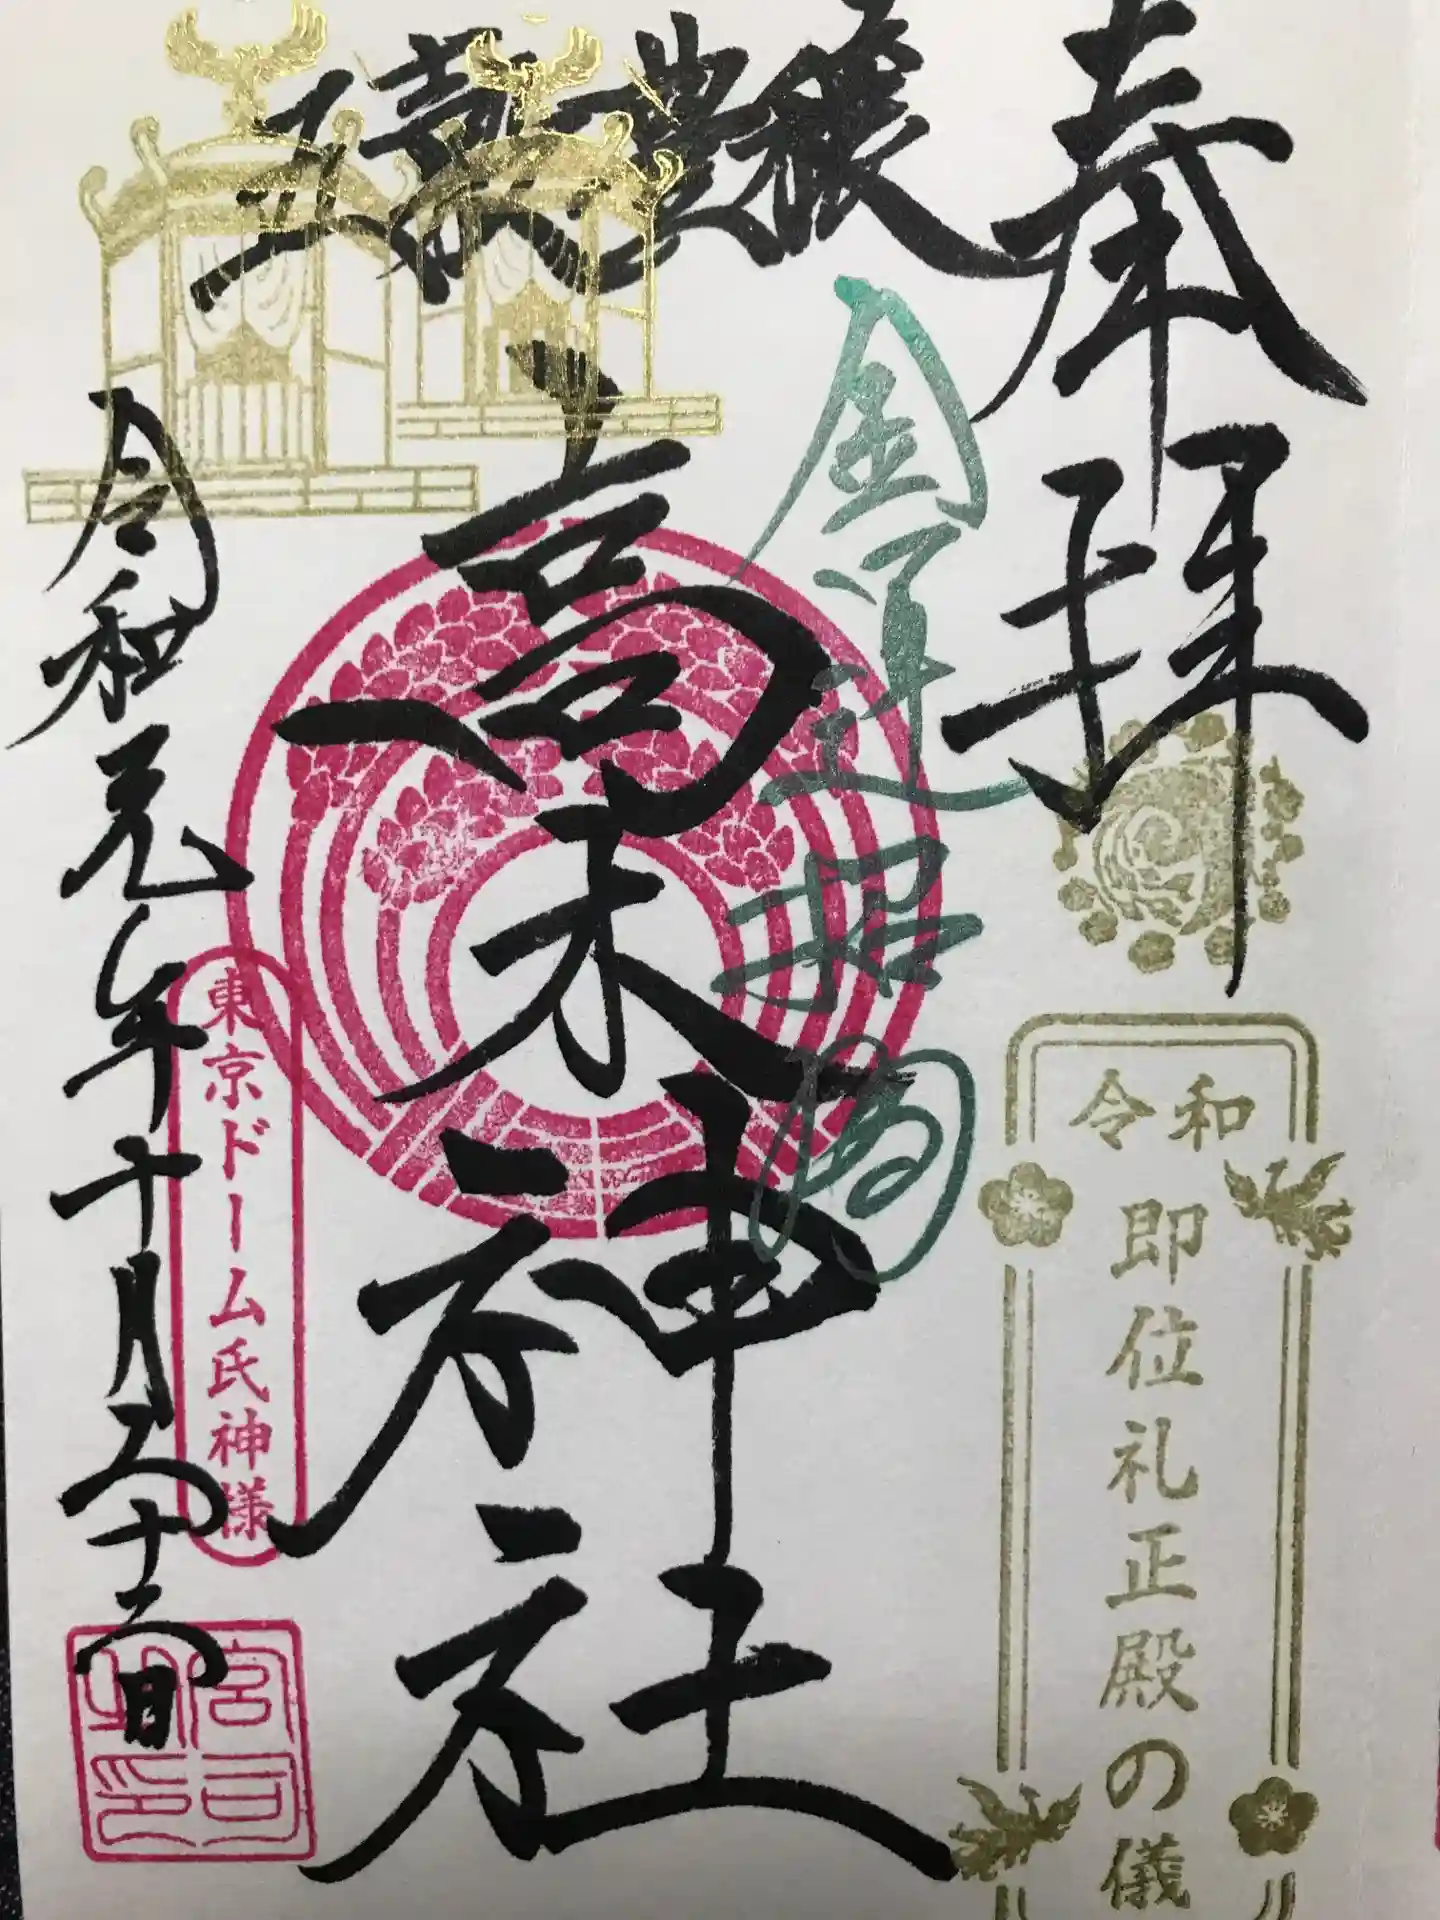 奉拝
令和
即位礼正殿の儀
金運招福
五穀豊穣
高木神社
東京ドーム氏神様
令和元年十月二十二日
宮司之印